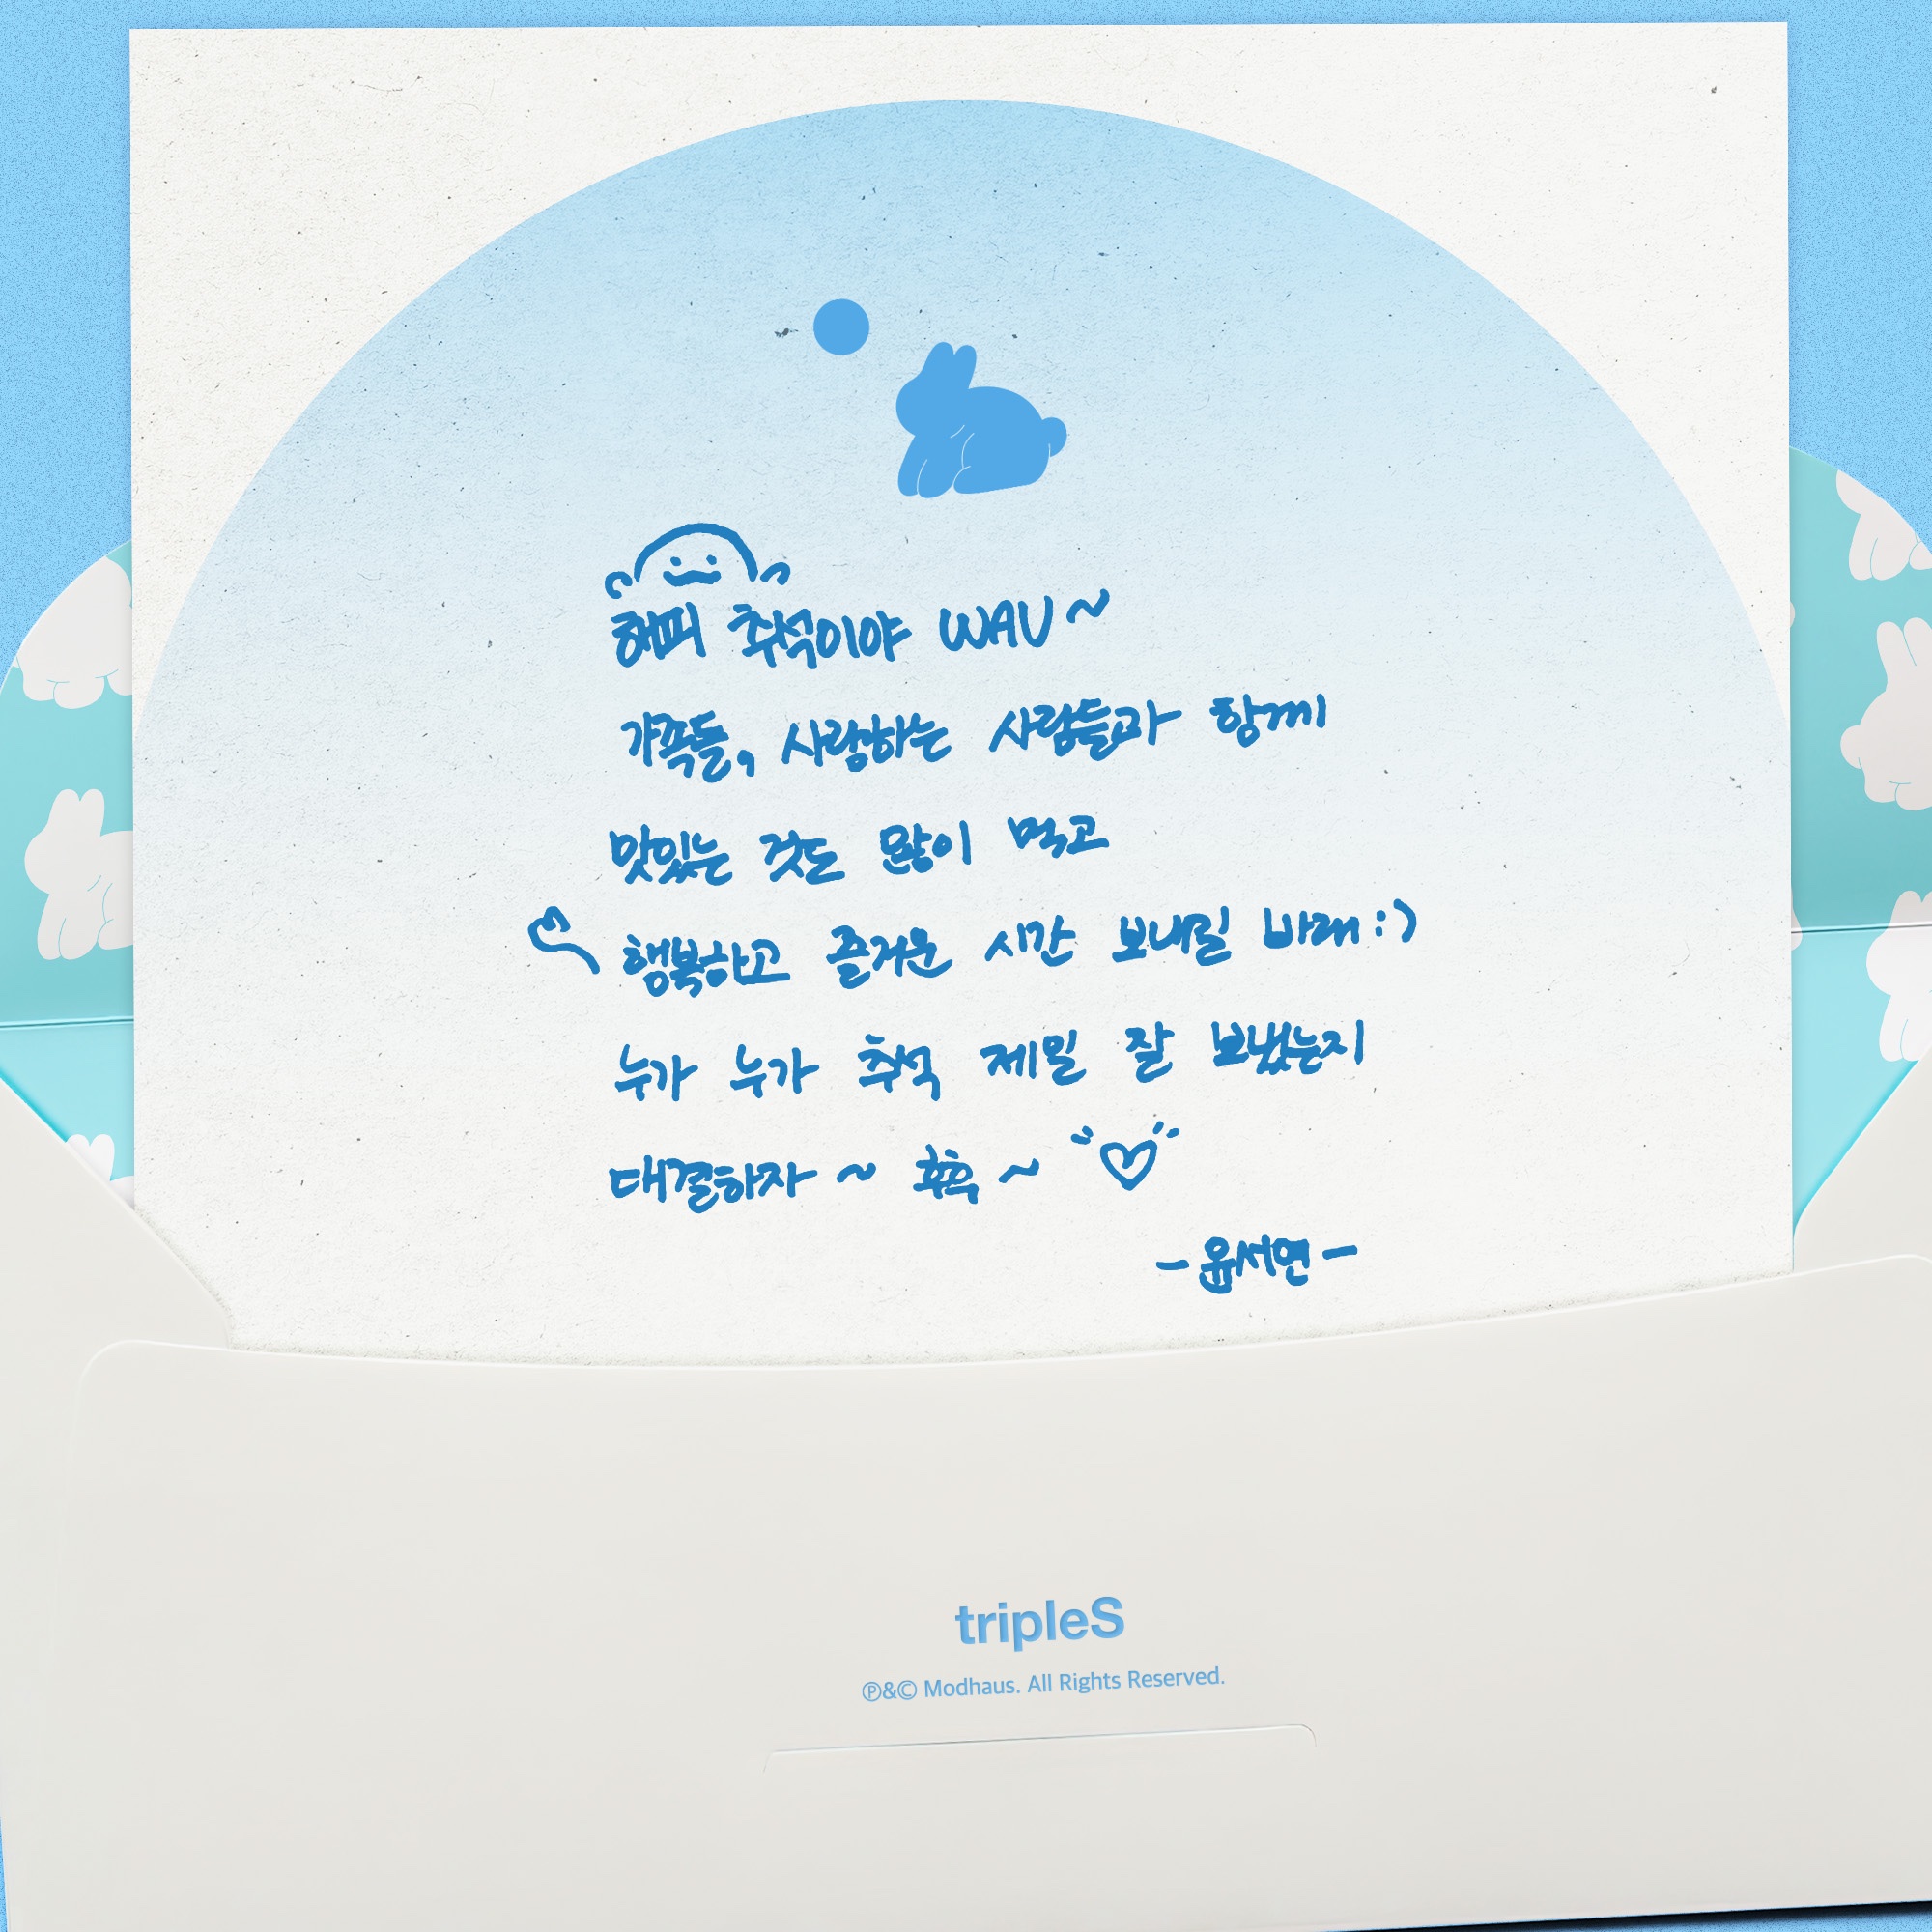 해피 추석이야 WAV~
가족들, 사랑하는 사람들과 함께
맛있는 것도 많이 먹고
행복하고 즐거운 시간 보내길 바래:)
누가 누가 추석 제일 잘 보냈는지
대결하자~ 훅~ ♡
-윤서연-
tripleS
℗&© Modhaus. All Rights Reserved.